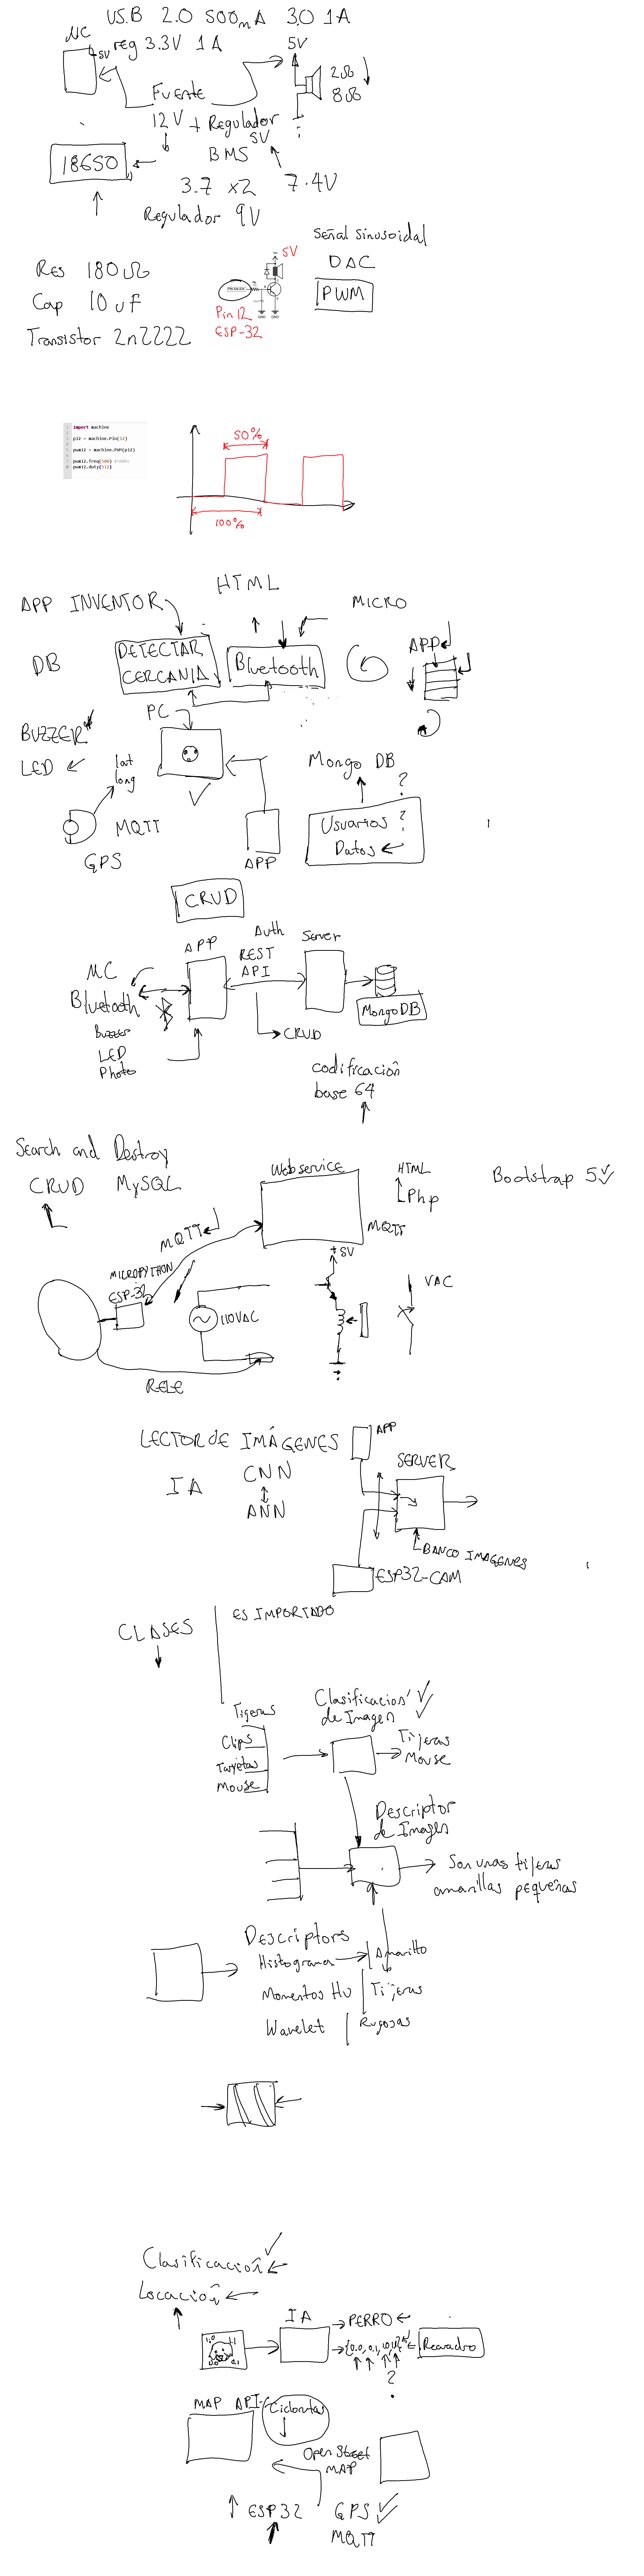 USB 2.0 500mA 3.0 1A
MC
5V
reg 3.3V 1A
5V
2Ω
8Ω
Fuente
12V + Regulador
5V
18650
BMS
3.7 x2 7.4V
Regulador 9V
Señal sinusoidal
DAC
PWM
Res 180Ω
Cap 10uF
Transistor 2n2222
5V
Pin 12
ESP-32
import machine
p12 = machine.Pin(12)
pwm12 = machine.PWM(p12)
pwm12.freq(500)
pwm12.duty(512)
50%
100%
HTML
APP INVENTOR
MICRO
DB
DETECTAR
CERCANIA
Bluetooth
APP
PC
BUZZER
LED
lat
long
Mongo DB
?
MQTT
GPS
APP
Usuarios ?
Datos
CRUD
MC
Bluetooth
Buzzer
LED
Photo
APP
Auth
REST
API
Server
CRUD
MongoDB
codificación
base 64
Search and Destroy
CRUD MySQL
Webservice
HTML
Php
Bootstrap 5
MQTT
MQTT
MICROPYTHON
ESP-32
+5V
110VAC
VAC
RELE
LECTOR de IMÁGENES
APP
IA
CNN
ANN
SERVER
BANCO IMAGENES
ESP32-CAM
CLASES
ES IMPORTADO
Tijeras
Clips
Tarjetas
Mouse
Clasificación
de Imagen
Tijeras
Mouse
Descriptor
de Imagen
Son unas tijeras
amarillas pequeñas
Descriptors
Histograma
Amarillo
Momentos Hu
Tijeras
Wavelet
Rugosas
Clasificación
Locación
IA
PERRO
Recuadro
?
MAP API
Ciclorutas
Open Street
MAP
ESP32
GPS
MQTT